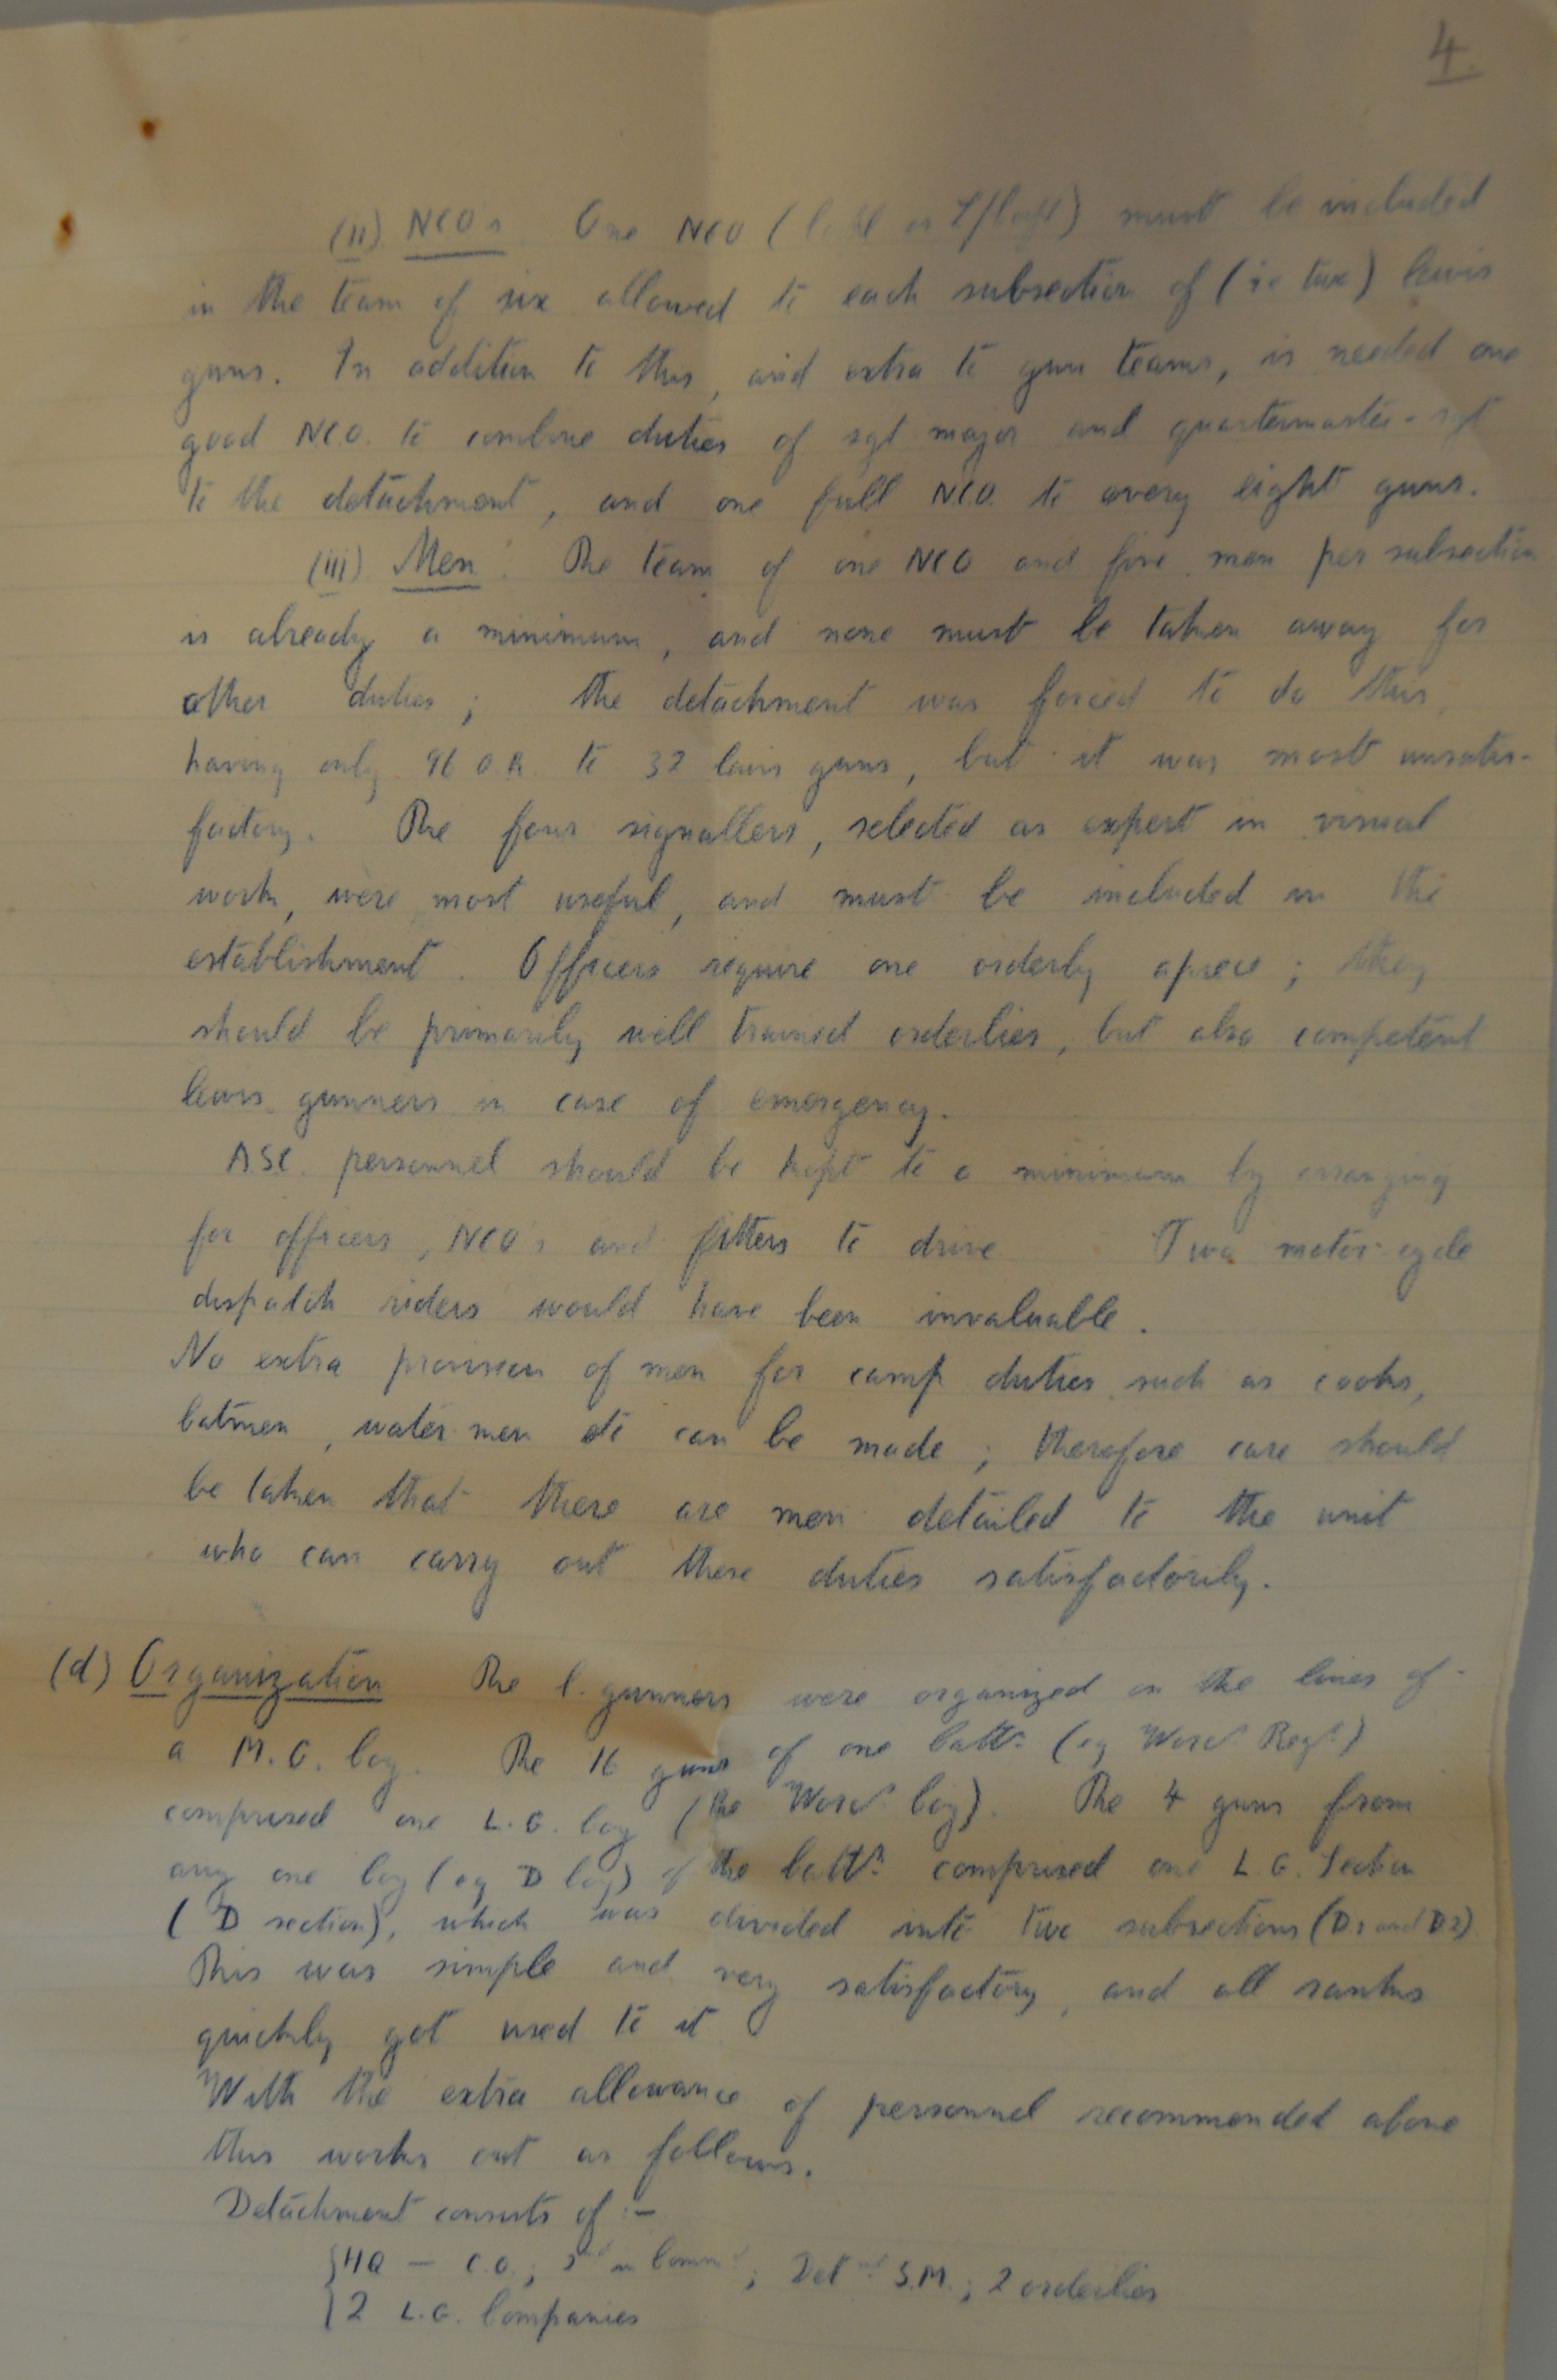 4.
(ii) NCO's. One NCO (Corpl or L/Corpl) must be included
in the team of six allowed to each subsection of (ie two) Lewis
guns. In addition to this, and extra to gun teams, is needed one
good N.C.O. to combine duties of sgt major and quartermaster-sgt
to the detachment, and one full N.C.O. to every eight guns.
(iii) Men. The team of one NCO and five men per subsection
is already a minimum, and none must be taken away for
other duties; the detachment was forced to do this,
having only 96 O.R. to 32 Lewis guns, but it was most unsatis-
factory. The four signallers, selected as expert in visual
work, were most useful, and must be included in the
establishment. Officers require one orderly apiece; they
should be primarily well trained orderlies, but also competent
Lewis gunners in case of emergency.
A.S.C. personnel should be kept to a minimum by arranging
for officers, NCO's and fitters to drive Two motor-cycle
dispatch riders would have been invaluable.
No extra provision of men for camp duties such as cooks,
batmen, water men etc can be made; therefore care should
be taken that there are men detailed to the unit
who can carry out these duties satisfactorily.
(d) Organization The L. gunners were organized on the lines of
a M.G. Coy. The 16 guns of one Battn (eg Worc Regt)
comprised one L.G. Coy (the Worc Coy). The 4 guns from
any one Coy (eg D Coy) of the Battn comprised one L.G. Section
(D section), which was divided into two subsections (D1 and D2)
This was simple and very satisfactory, and all ranks
quickly got used to it
With the extra allowance of personnel recommended above
this works out as follows.
Detachment consists of :-
{HQ — C.O.; 2nd in Commd; Detnt S.M.; 2 orderlies
{2 L.G. Companies